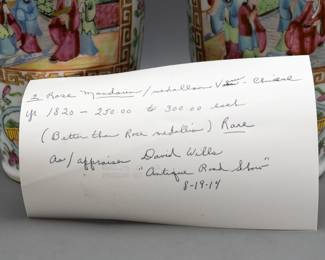 2 Rose Mandarin/medallion Vases - Chinese
yr 1820 - 250.00 to 300.00 each
(Better than Rose medallion) Rare
as/appraiser David Wills
" "Antique Road Show"
8-19-14